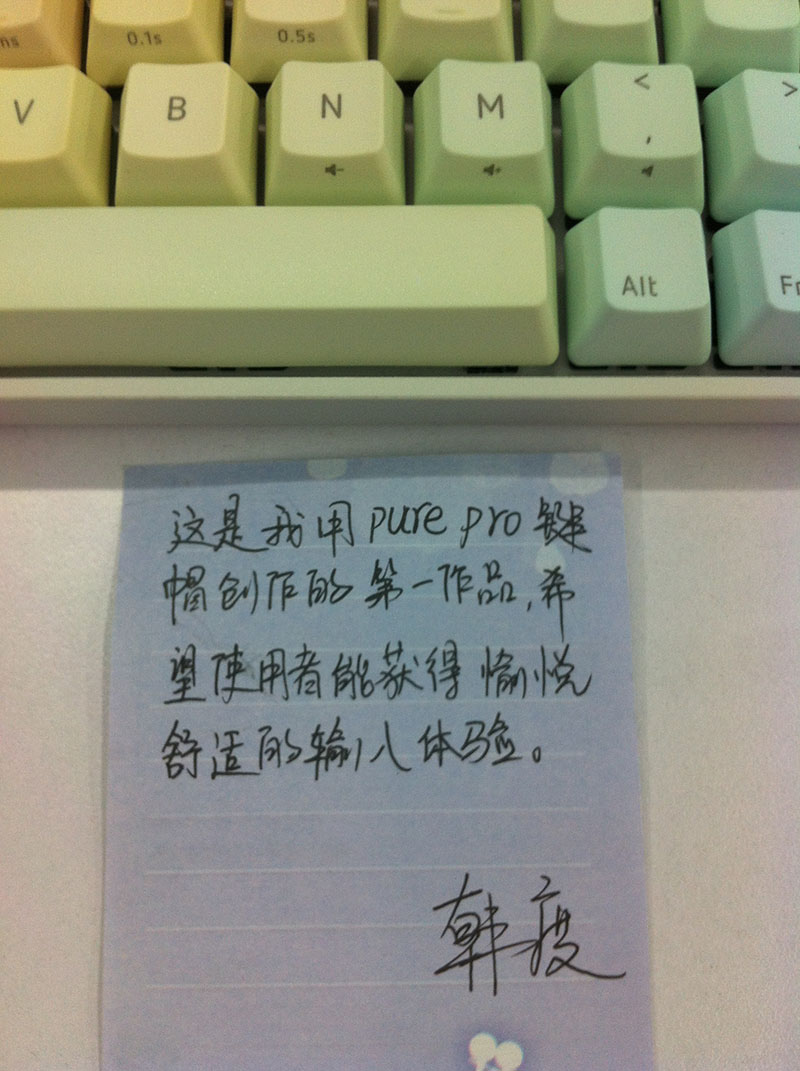 0.1s
0.5s
V B N M < >
,
Alt
这是我用pure pro键
帽创作的第一作品,希
望使用者能获得愉悦
舒适的输入体验。
韩